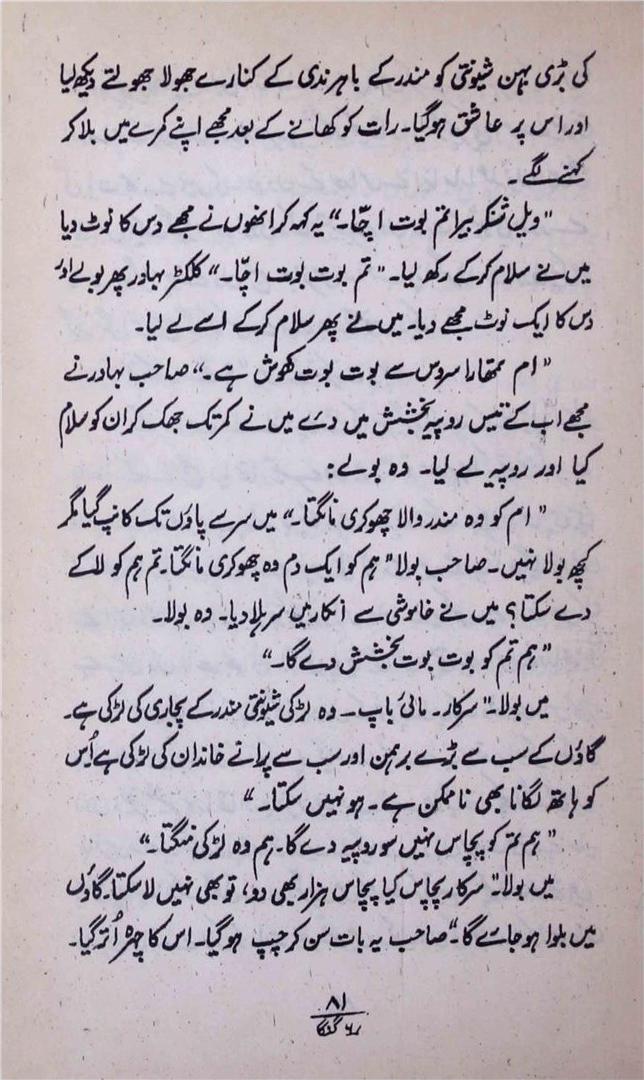 کی بڑی بہن شیونتی کو مندر کے باہر ندی کے کنارے جھولا جھولتے دیکھ لیا
اور اس پر عاشق ہو گیا۔ رات کو کھانے کے بعد مجھے اپنے کمرے میں بلا کر
کہنے لگے۔
"ویل شنکر بیرا تم بوت اچّا۔" یہ کہہ کر انھوں نے مجھے دس کا نوٹ دیا
میں نے سلام کر کے رکھ لیا۔ "تم بوت بوت اچّا۔" کلکٹر بہادر پھر بولے اور
دس کا ایک نوٹ مجھے دیا۔ میں نے پھر سلام کر کے اسے لے لیا۔
"ام تمھارا سروس سے بوت بوت کھوش ہے۔" صاحب بہادر نے
مجھے اب کے تیس روپیہ بخشش میں دے میں نے کمر تک جھک کر ان کو سلام
کیا اور روپیہ لے لیا۔ وہ بولے:
"ام کو وہ مندر والا چھوکری مانگتا۔" میں سر سے پاؤں تک کانپ گیا مگر
کچھ بولا نہیں۔ صاحب بولا "ہم کو ایک دم وہ چھوکری مانگتا۔ تم ہم کو لا کے
دے سکتا؟ میں نے خاموشی سے انکار میں سر ہلا دیا۔ وہ بولا۔
"ہم تم کو بوت بوت بخشش دے گا۔"
میں بولا۔ "سرکار۔ مائی باپ ــ وہ لڑکی شیونتی مندر کے پجاری کی لڑکی ہے۔
گاؤں کے سب سے بڑے برہمن اور سب سے پرانے خاندان کی لڑکی ہے اُس
کو ہاتھ لگانا بھی ناممکن ہے۔ ہو نہیں سکتا۔"
"ہم تم کو پچاس نہیں سو روپیہ دے گا۔ ہم وہ لڑکی منگتا۔"
میں بولا۔ "سرکار پچاس کیا پچاس ہزار بھی دو، تو بھی نہیں لا سکتا۔ گاؤں
میں بلوا ہو جائے گا۔" صاحب یہ بات سن کر چپ ہو گیا۔ اس کا چہرہ اُتر گیا۔
۸۱